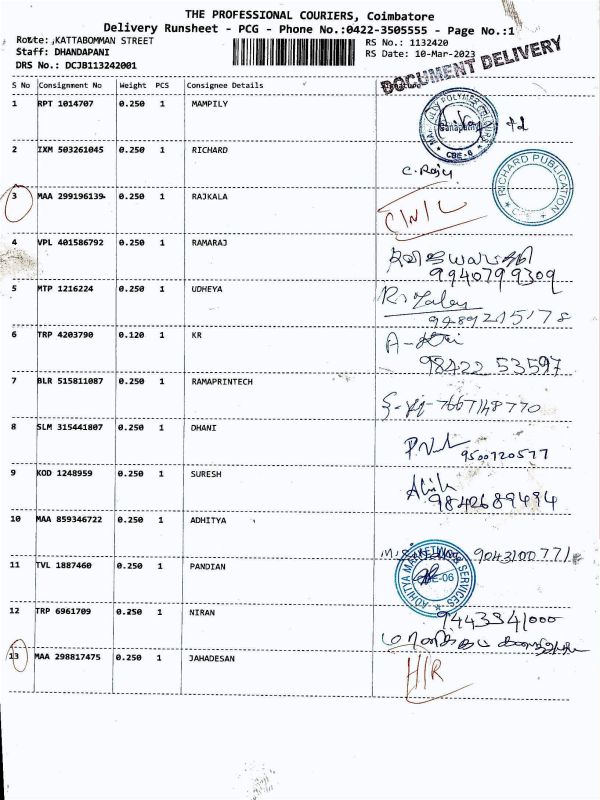 THE PROFESSIONAL COURIERS, Coimbatore
Delivery Runsheet - PCG - Phone No.:0422-3505555 - Page No.:1
Route: KATTABOMMAN STREET
RS No.: 1132420
Staff: DHANDAPANI
RS Date: 10-Mar-2023
DRS No.: DCJB113242001
DOCUMENT DELIVERY
S No Consignment No Weight PCS Consignee Details
1 RPT 1014707 0.250 1 MAMPILY
CBE-6
2 IXM 503261045 0.250 1 RICHARD
C. Raju
RICHARD PUBLICATION
3 MAA 299196139 0.250 1 RAJKALA
C/N/L
4 VPL 401586792 0.250 1 RAMARAJ
9940799309
5 MTP 1216224 0.250 1 UDHEYA
9489215178
6 TRP 4203790 0.120 1 KR
98422 53597
7 BLR 515811087 0.250 1 RAMAPRINTECH
7667148770
8 SLM 315441807 0.250 1 DHANI
9500720577
9 KOD 1248959 0.250 1 SURESH
9842689494
10 MAA 859346722 0.250 1 ADHITYA
9043100771
ADHITYA MARKETING SERVICES
CBE-06
11 TVL 1887460 0.250 1 PANDIAN
12 TRP 6961709 0.250 1 NIRAN
9443341000
13 MAA 298817475 0.250 1 JAHADESAN
H/R